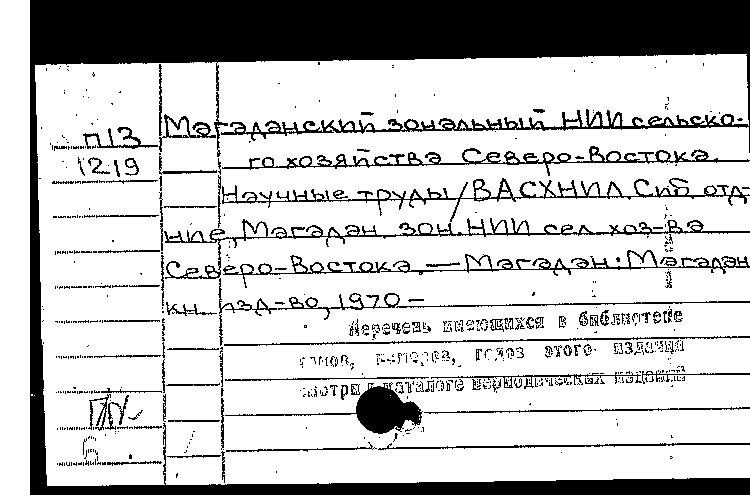 Магаданский зональный НИИ сельско-
П13
1219
го хозяйства Северо-Востока.
Научные труды/ВАСХНИЛ. Сиб. отд-
ние, Магадан. зон. НИИ сел. хоз-ва
Северо-Востока. — Магадан: Магадан
кн. изд-во, 1970 —
Перечень имеющихся в библиотеке
томов, номеров, годов этого издания
смотри в каталоге периодических изданий
6